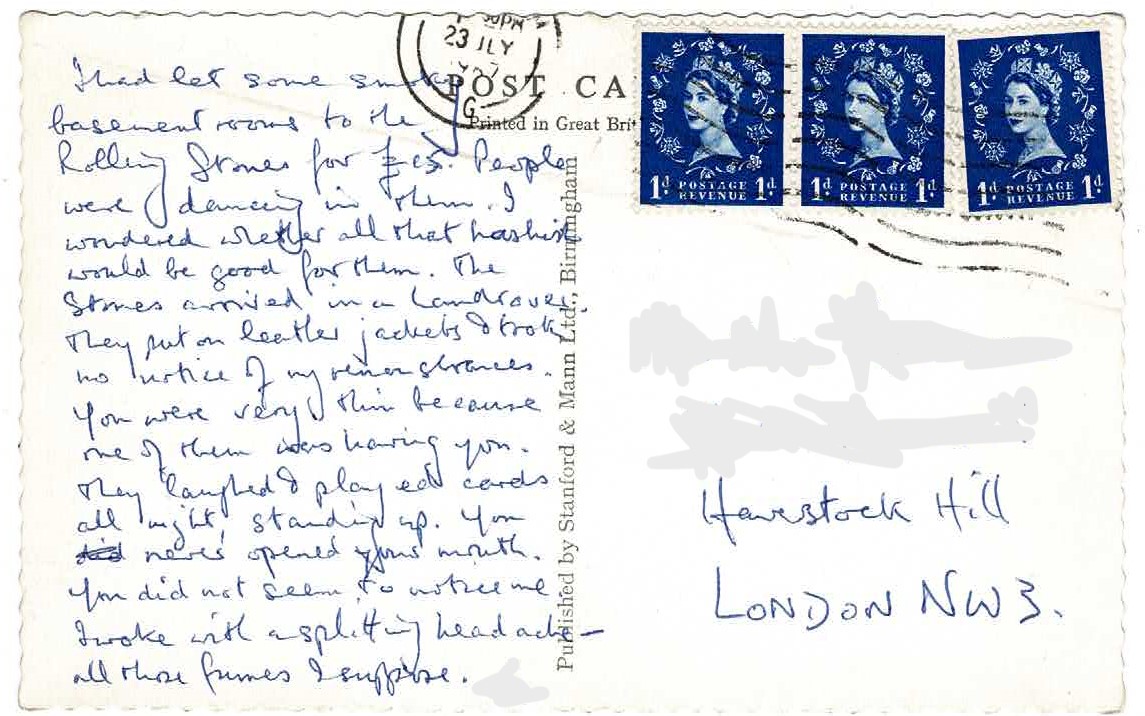 I had let some smoky
basement rooms to the
Rolling Stones for £15. People
were dancing in them. I
wondered whether all that hashish
would be good for them. The
Stones arrived in a Landrover.
They put on leather jackets & took
no notice of my remonstrances.
You were very thin because
one of them was having you.
They laughed & played cards
all night, standing up. You
did never opened your mouth.
You did not seem to notice me
I woke with a splitting headache –
all those fumes I suppose.
30PM
23 JLY
G
POST CA
Printed in Great Brit
Published by Stanford & Mann Ltd., Birmingham
1d POSTAGE REVENUE 1d
1d POSTAGE REVENUE 1d
1d POSTAGE REVENUE 1d
Haverstock Hill
LONDON NW3.